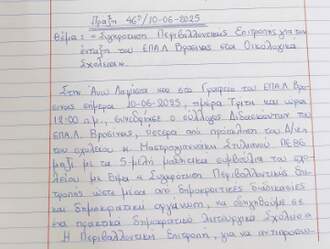 Πράξη 46η/10-06-2025
Θέμα: «Συγκρότηση Περιβαλλοντικής Επιτροπής για την
ένταξη του ΕΠΑ.Λ Βροσίνας στα Οικολογικά
Σχολεία».
Στην Άνω Λαψίστα και στα Γραφεία του ΕΠΑ.Λ Βρο-
σίνας σήμερα 10-06-2025, ημέρα Τρίτη και ώρα
12:00 π.μ., συνεδρίασε ο σύλλογος Διδασκόντων του
ΕΠΑ.Λ. Βροσίνας, ύστερα από πρόσκληση του Δ/ντή
του σχολείου κ. Στυλιανού ΠΕ86
μαζί με τα 5-μελή μαθητικά συμβούλια του σχο-
λείου με θέμα «Συγκρότηση Περιβαλλοντικής Επι-
τροπής ώστε μέσα από δημοκρατικές διαδικασίες
και δημοκρατική οργάνωση, να οδηγηθούμε σε
ένα πρακτικά δημοκρατικό λειτουργικό Σχολείο».
Η Περιβαλλοντική Επιτροπή, για να αντιπροσω-